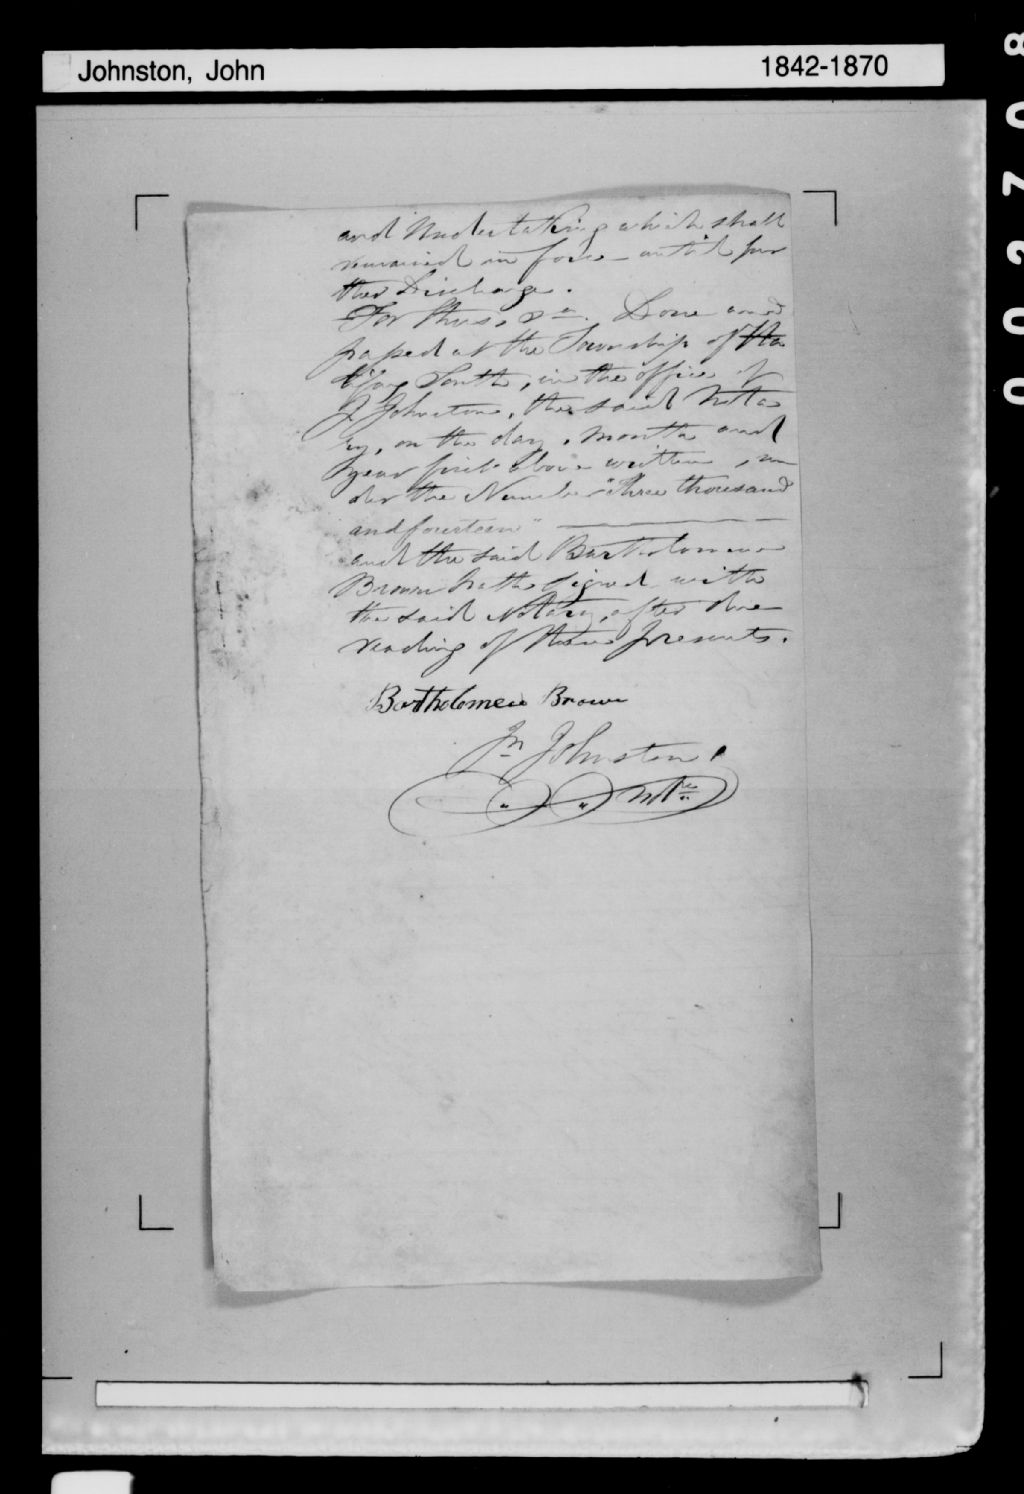 Johnston, John 1842-1870
002708
and Undertaking which shall
remained in force until fur
ther Discharge.
For thus, &a. Done and
passed at the Township of Ha
lifax South, in the office of
J Johnston, the said Nota
ry, on the day, month and
year first above written, un
der the Number "Three thousand
and fourteen"
and the said Bartholomew
Brown hath signed with
the said Notary, after due
reading of these presents.
Bartholomew Brown
Jn Johnston,